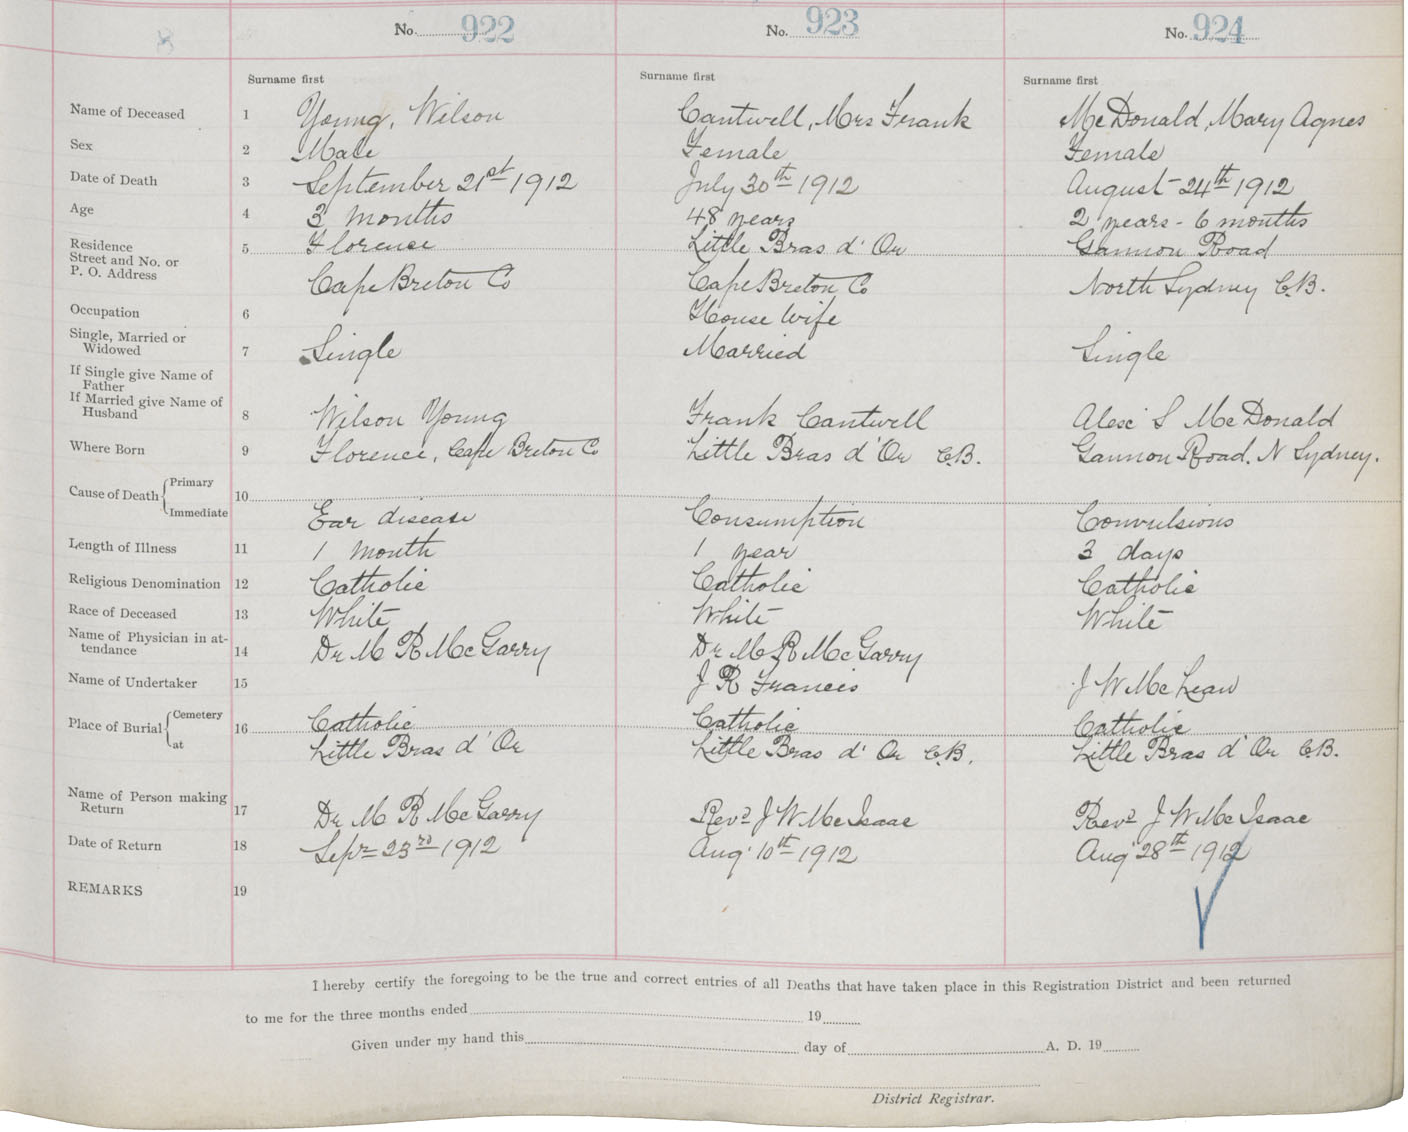 No. 922 No. 923 No. 924
Surname first Surname first Surname first
Name of Deceased 1 Young, Wilson Cantwell, Mrs Frank McDonald, Mary Agnes
Sex 2 Male Female Female
Date of Death 3 September 21st 1912 July 30th 1912 August 24th 1912
Age 4 3 months 48 years 2 years - 6 months
Residence 5 Florence Little Bras d'Or Gannon Road
Street and No. or
P. O. Address Cape Breton Co Cape Breton Co North Sydney C.B.
Occupation 6 House Wife
Single, Married or
Widowed 7 Single Married Single
If Single give Name of
Father
If Married give Name of
Husband 8 Wilson Young Frank Cantwell Alex S McDonald
Where Born 9 Florence, Cape Breton Co Little Bras d'Or C.B. Gannon Road. N Sydney.
Cause of Death Primary 10
Immediate Ear disease Consumption Convulsions
Length of Illness 11 1 month 1 year 3 days
Religious Denomination 12 Catholic Catholic Catholic
Race of Deceased 13 White White White
Name of Physician in at-
tendance 14 Dr M R McGarry Dr M R McGarry
Name of Undertaker 15 J R Francis J W McLean
Place of Burial Cemetery 16 Catholic Catholic Catholic
at Little Bras d'Or Little Bras d'Or C.B. Little Bras d'Or C.B.
Name of Person making
Return 17 Dr M R McGarry Revd J W McIsaac Revd J W McIsaac
Date of Return 18 Sept 23rd 1912 Aug 10th 1912 Aug 28th 1912
REMARKS 19
I hereby certify the foregoing to be the true and correct entries of all Deaths that have taken place in this Registration District and been returned
to me for the three months ended 19
Given under my hand this day of A. D. 19
District Registrar.